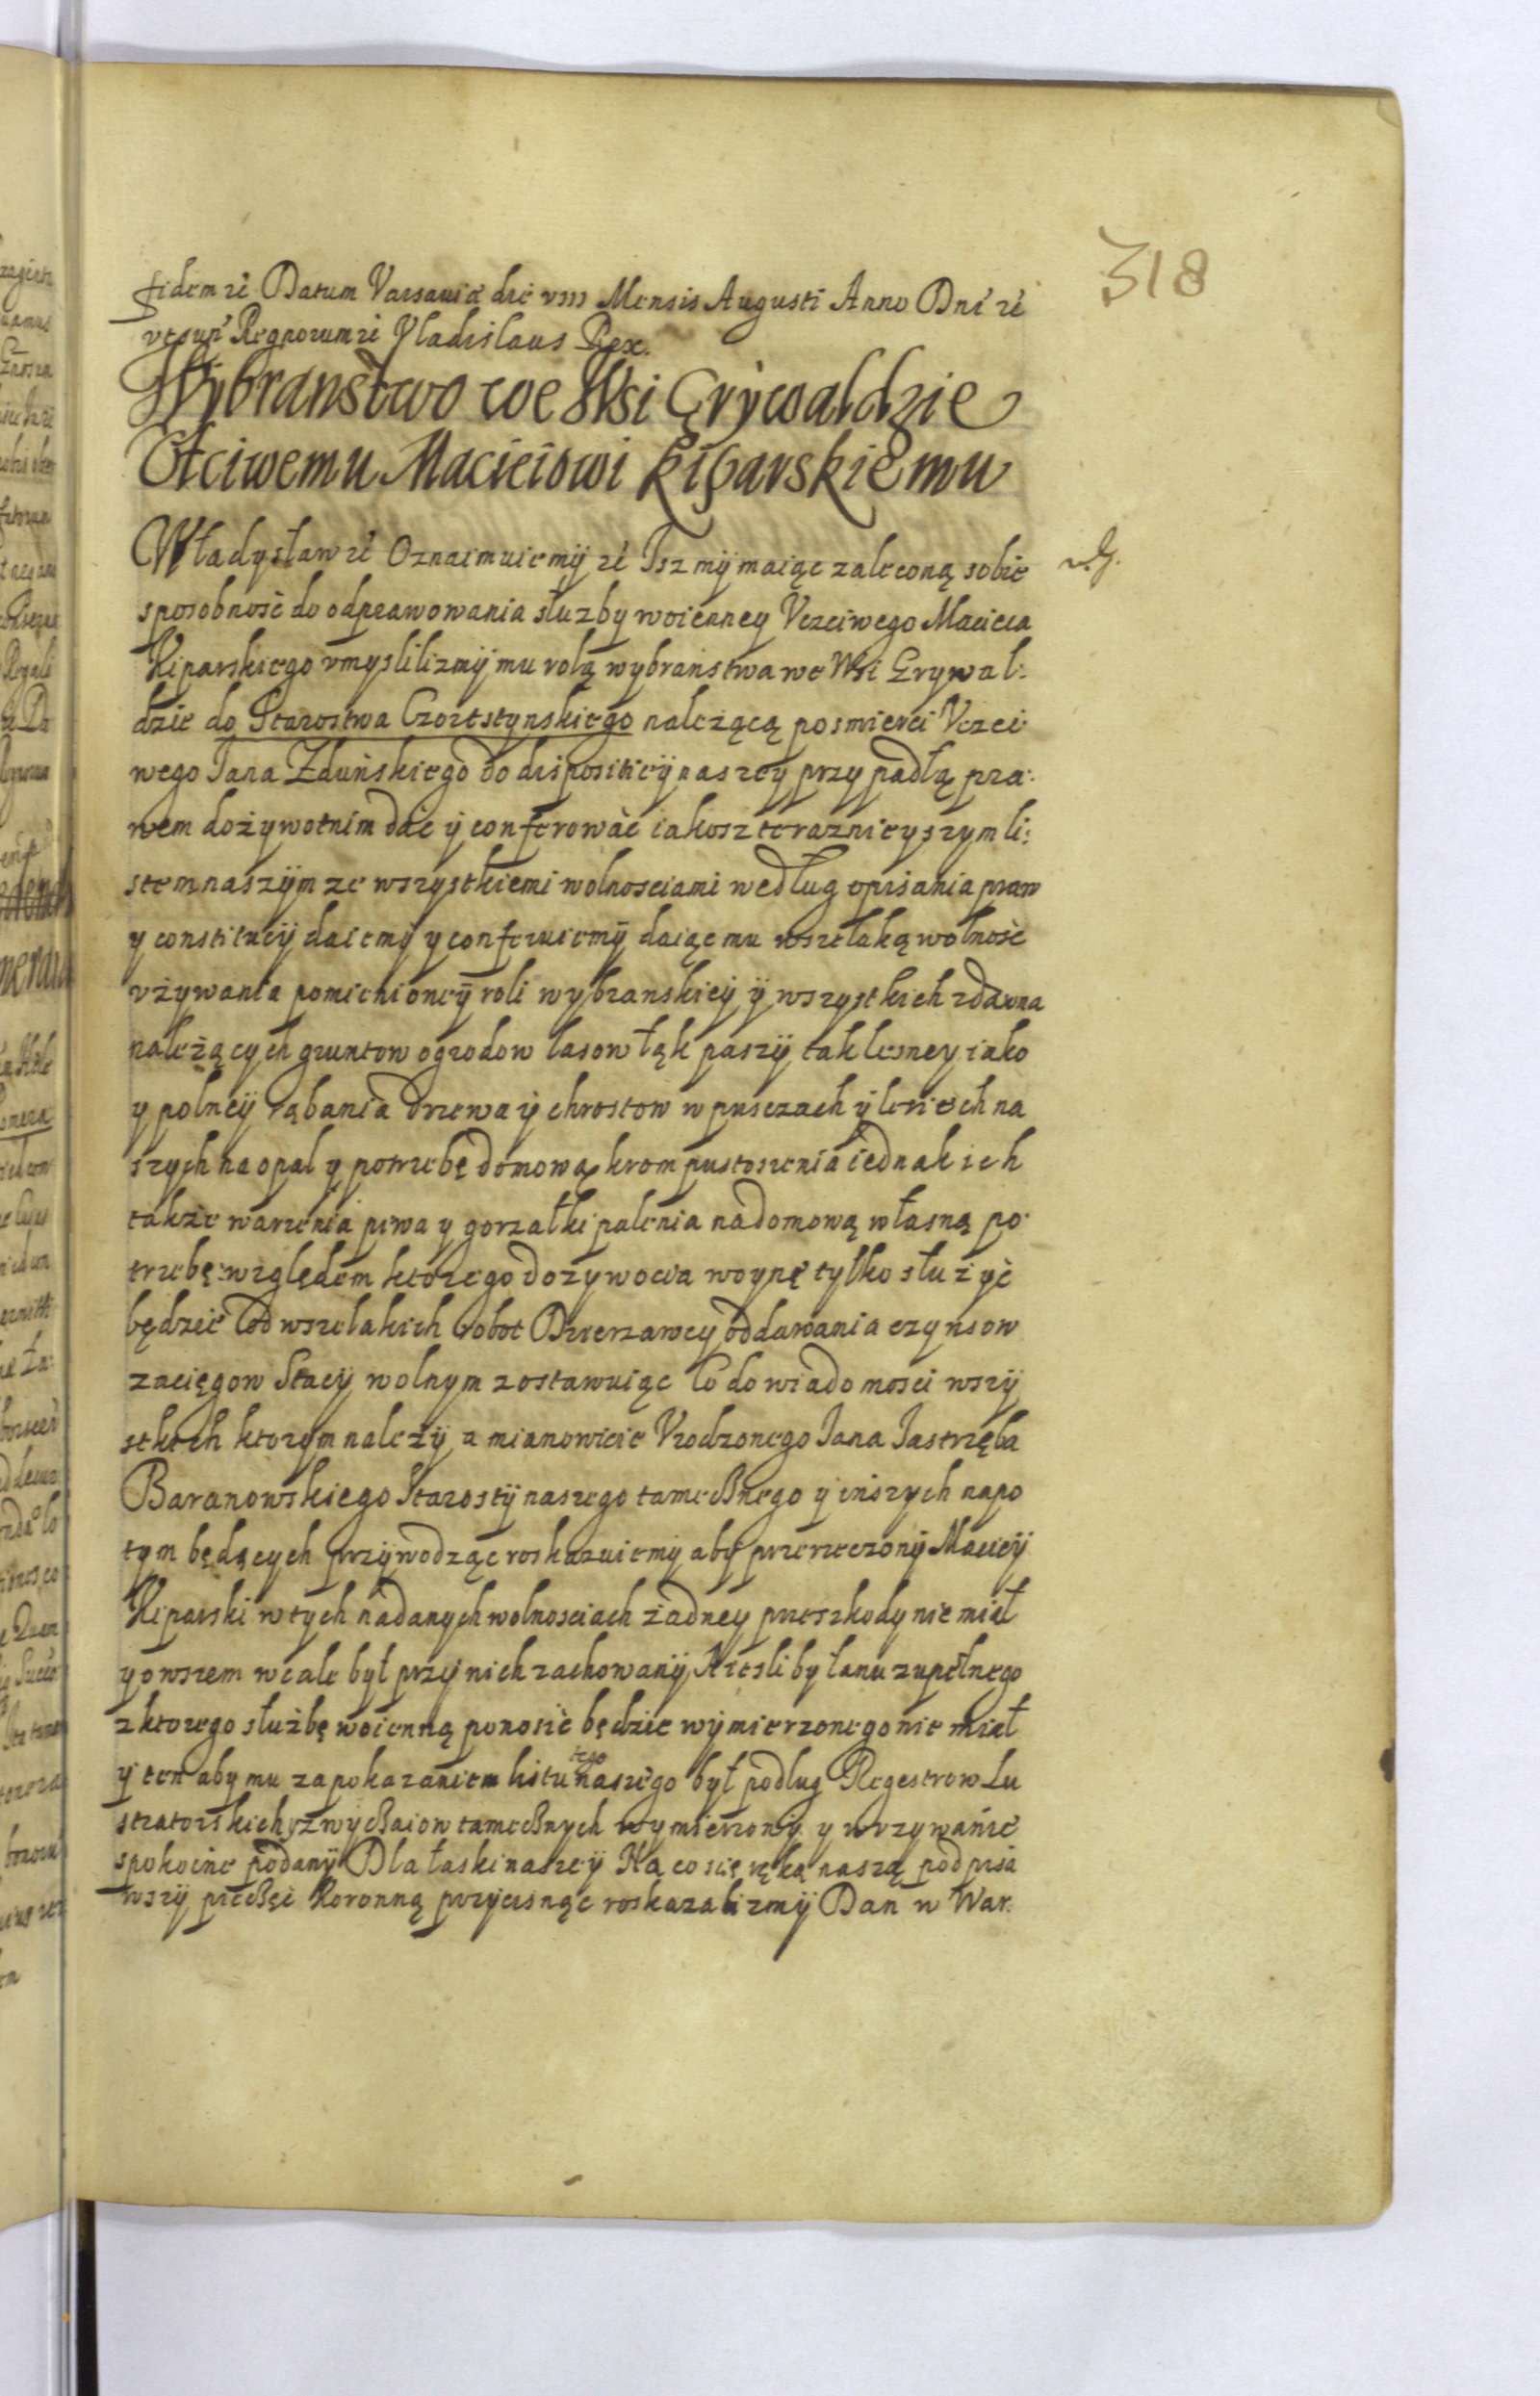 318
fidem rẻ Datum Varsaviæ die VIII Mensis Augusti Anno Dnĩ rẻ
vt supr̃ Regnorum rẻ Vladislaus Rex.
Wybranstwo we Wsi Grywaldzie
Otciwemu Macieiowi Kiparskiemu
Władysław rẻ Oznaimuiemÿ rẻ Isz mÿ maiąc zaleconą sobie
sposobność do odprawowania służby woienney Vczciwego Macieia
Kiparskiego vmyslilizmÿ mu rolą wybraństwa we Wsi Grywal:
dzie do Starostwa Czorstynskiego należącą po smierci Vczci
wego Jana Zduńskiego do dispositiey naszey przypadłą pra:
wem dożywotnim dać ÿ conferować iakosz teraznieyszym li:
stem naszÿm ze wszystkiemi wolnosciami według opisania praw
y constitucÿ daiemÿ y conferuiemÿ daiąc mu wszelaką wolność
vżywania pomienioneÿ roli wybranskieÿ ÿ wszystkich zdawna
należących gruntow ogrodow lasow łąk paszÿ tak lesney iako
y polneÿ rąbania drzewa ÿ chrostow w pusczach ÿ lesiech na
szych na opal y potrzebę domową krom pustoszenia iednak ich
także warzenia piwa y gorzałki palenia na domową własną po
trzebę: względem ktorego dożywocia woynę tylko służyć
będzie Od wszelakich robot Dzierzawcy oddawania czynsow
zacięgow Stacÿ wolnym zostawuiąc Co do wiadomosci wszÿ
stkich ktorym należÿ a mianowicie Vrodzonego Jana Jastrzęba
Baranowskiego Starostÿ naszego tamecznego y inszych napo
tym będących przÿwodząc roskazuiemy abÿ przerzeczonÿ Macieÿ
Kiparski w tych nadanych wolnosciach żadney przeszkody nie miał
y owszem wcale był przÿ nich zachowanÿ A iesli by łanu zupełnego
z ktorego służbę woienną ponosić będzie wÿmierzonego nie miał
ÿ ten aby mu za pokazaniem listu tego naszego był podług Regestrow Lu
stratorskich y zwyczaiow tamecznych wymierzonÿ y w vzywanie
spokoine podanÿ Dla łaski naszeÿ Na co się ręką naszą podpisa
wszÿ pieczęć Koronną przycisnąć roskazalizmÿ Dan w War: